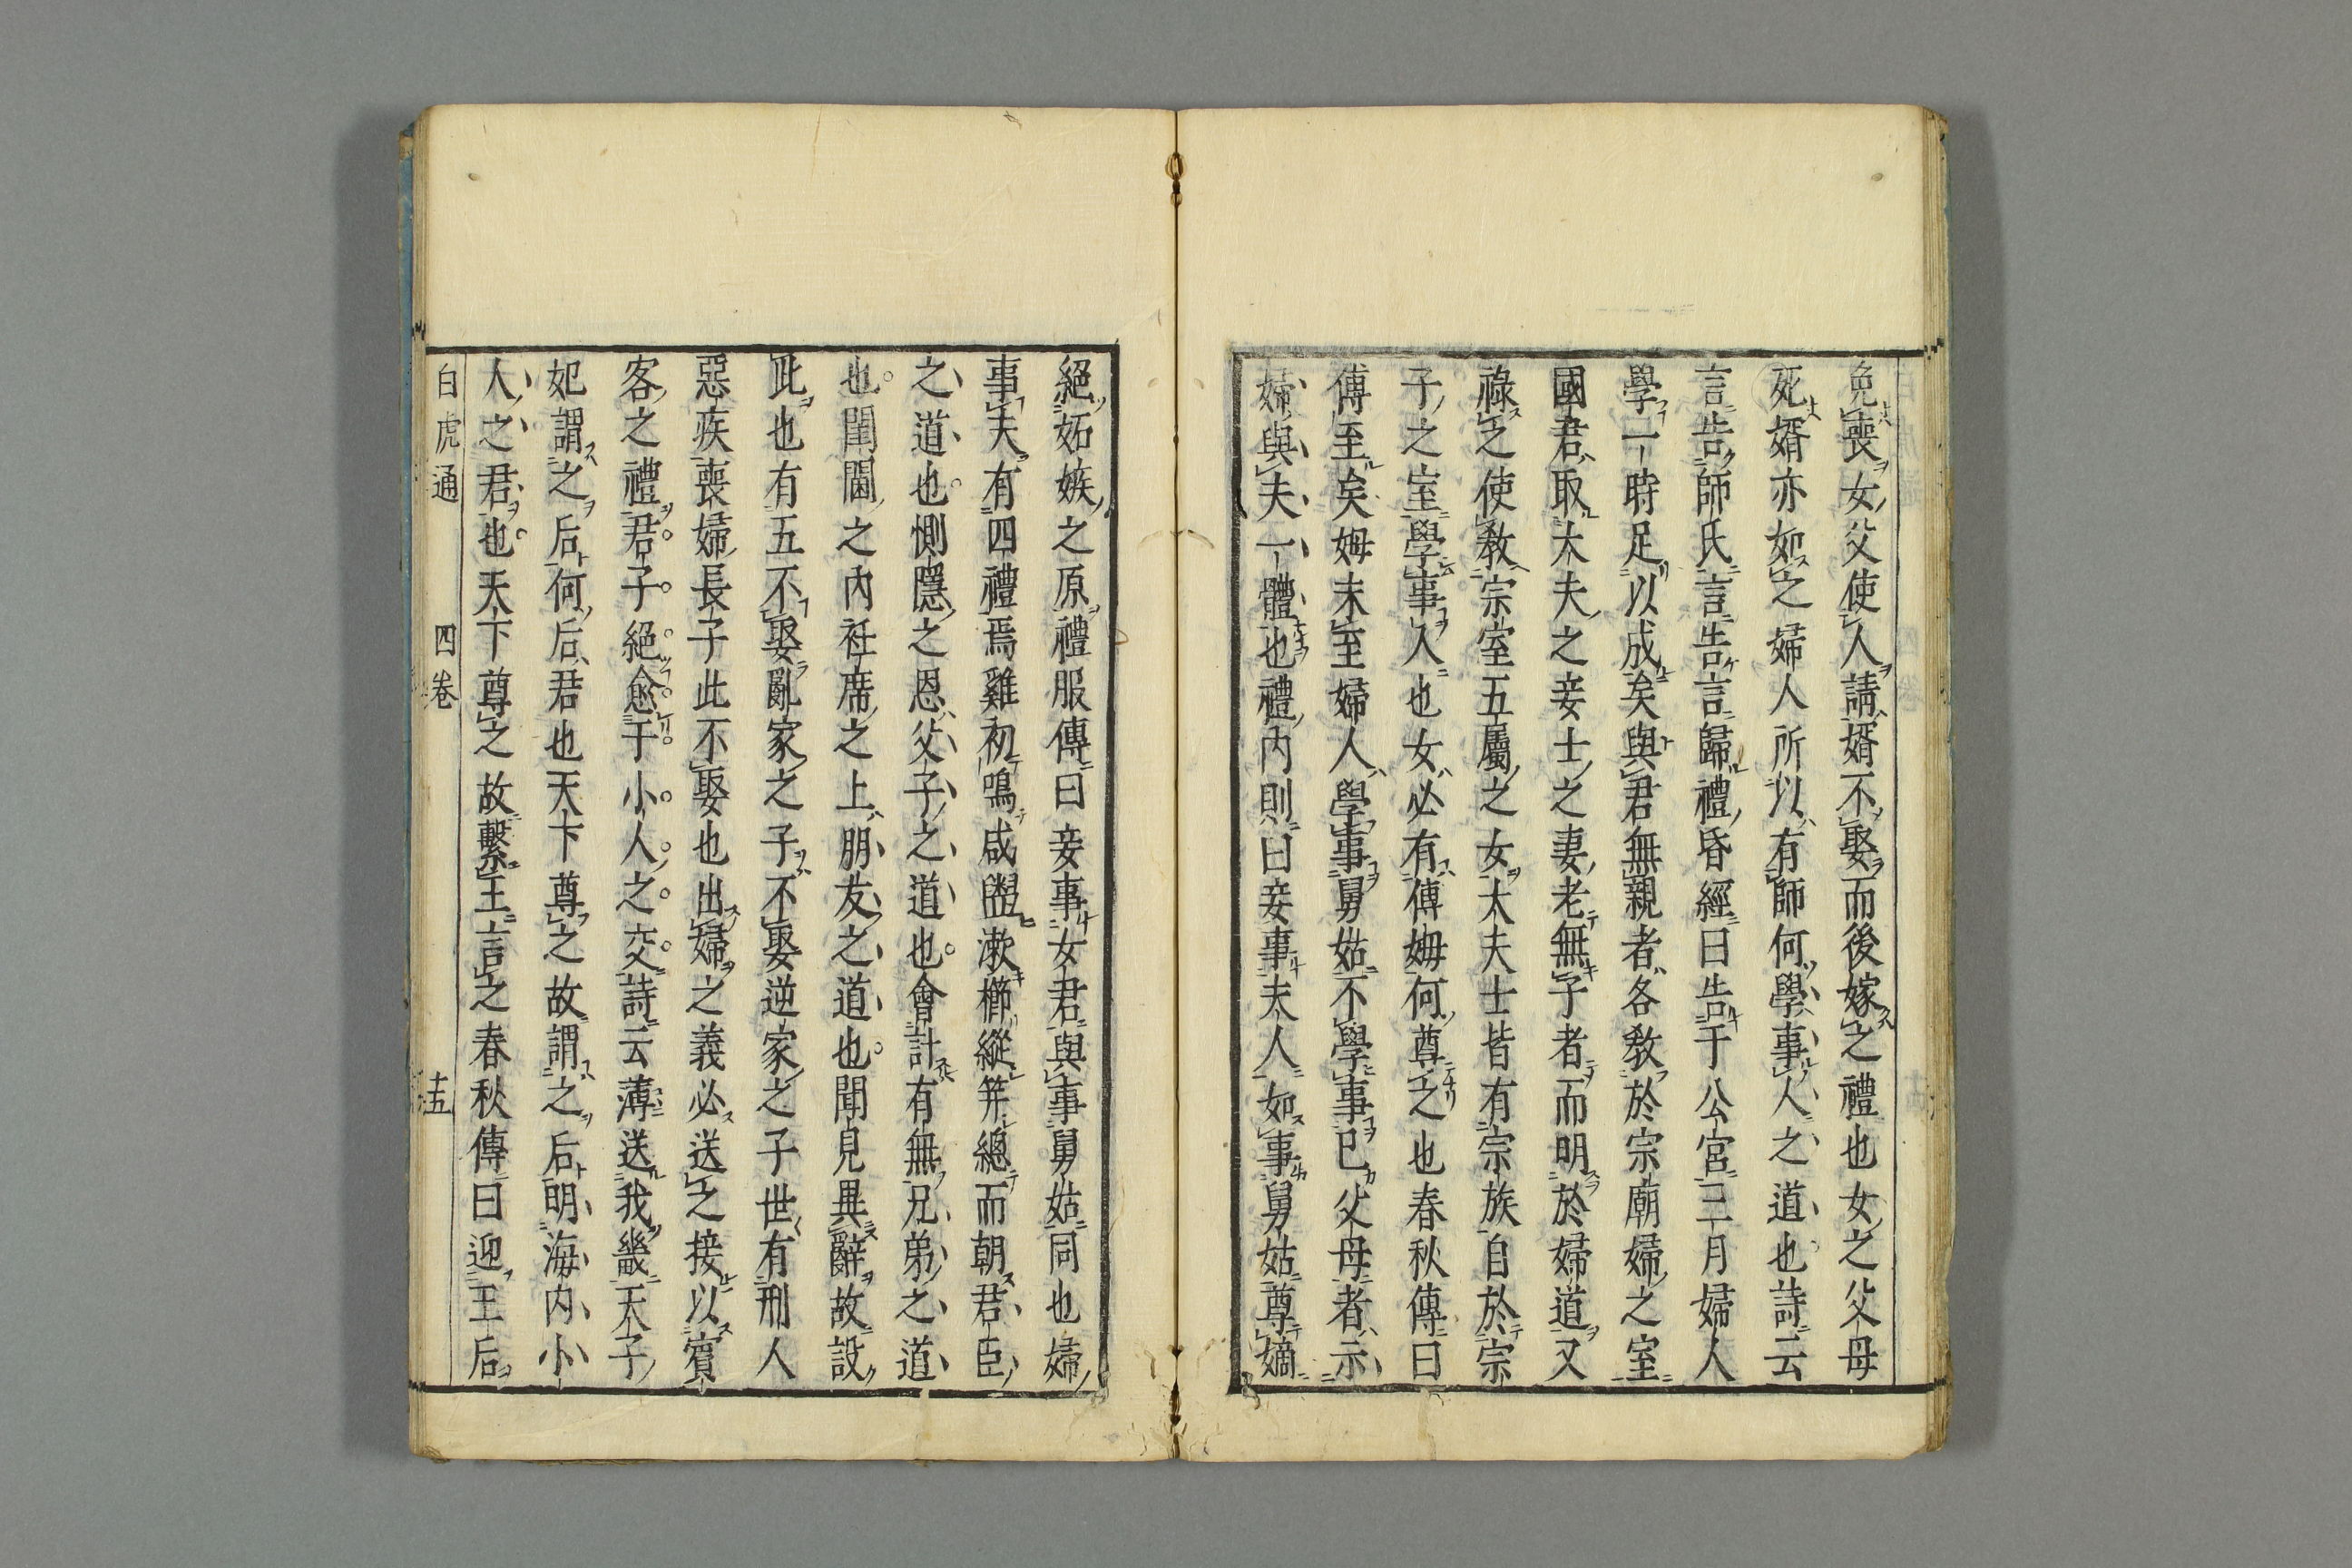 免喪女父使人請壻不娶而後嫁之禮也女之父母
死壻亦如之婦人所以有師何學事人之道也詩云
言告師氏言告言歸禮昏經曰告于公宮三月婦人
學一時足以成矣與君無親者各敎於宗廟婦之室
國君取大夫之妾士之妻老無子者而明於婦道又
祿之使敎宗室五屬之女大夫士皆有宗族自於宗
子之室學事人也女必有傅姆何尊之也春秋傳曰
傅至矣姆未至婦人學事舅姑不學事已父母者示
婦與夫一體也禮內則曰妾事夫人如事舅姑尊嫡
絕妬嫉之原禮服傳曰妾事女君與事舅姑同也婦
事夫有四禮焉雞初鳴咸盥漱櫛縰笄總而朝君臣
之道也惻隱之恩父子之道也會計有無兄弟之道
也閨閫之內衽席之上朋友之道也聞見異辭故設
此也有五不娶亂家之子不娶逆家之子世有刑人
惡疾喪婦長子此不娶也出婦之義必送之接以賓
客之禮君子絕愈于小人之交詩云薄送我畿天子
妃謂之后何后君也天下尊之故謂之后明海內小
人之君也天下尊之故繫王言之春秋傳曰迎王后
白虎通 四卷 十五